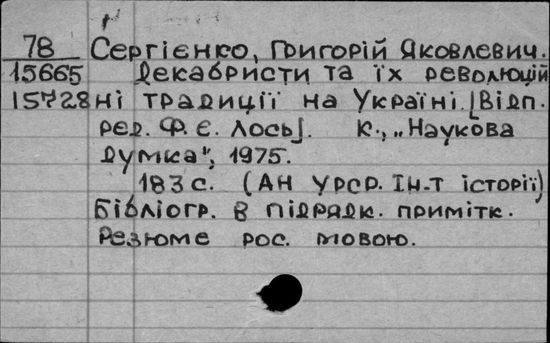 78 Сергієнко, Григорій Яковлевич.
15665 Декабристи та їх революцій
15728 ні традиції на Україні. [Відп.
ред. Ф. Є. Лось]. К., „Наукова
думка", 1975.
183 с. (АН УРСР. Ін-т історії)
Бібліогр. в підрядк. примітк.
Резюме рос. мовою.